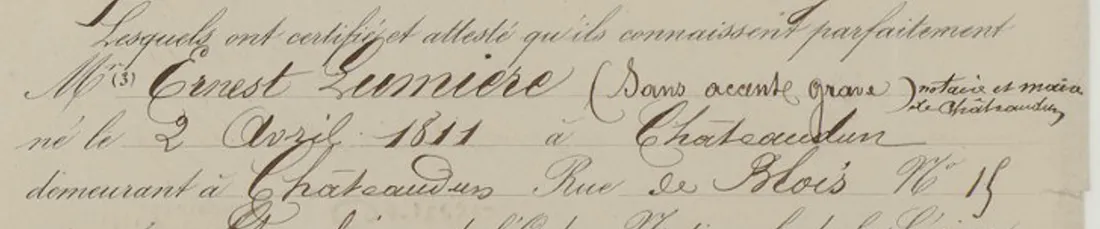 Lesquels ont certifié et attesté qu'ils connaissent parfaitement
Mr (3) Ernest Lumiere (Sans acante grave) notaire et maire de Châteaudun
né le 2 Avril 1811 à Châteaudun
demeurant à Châteaudun Rue de Blois No 15